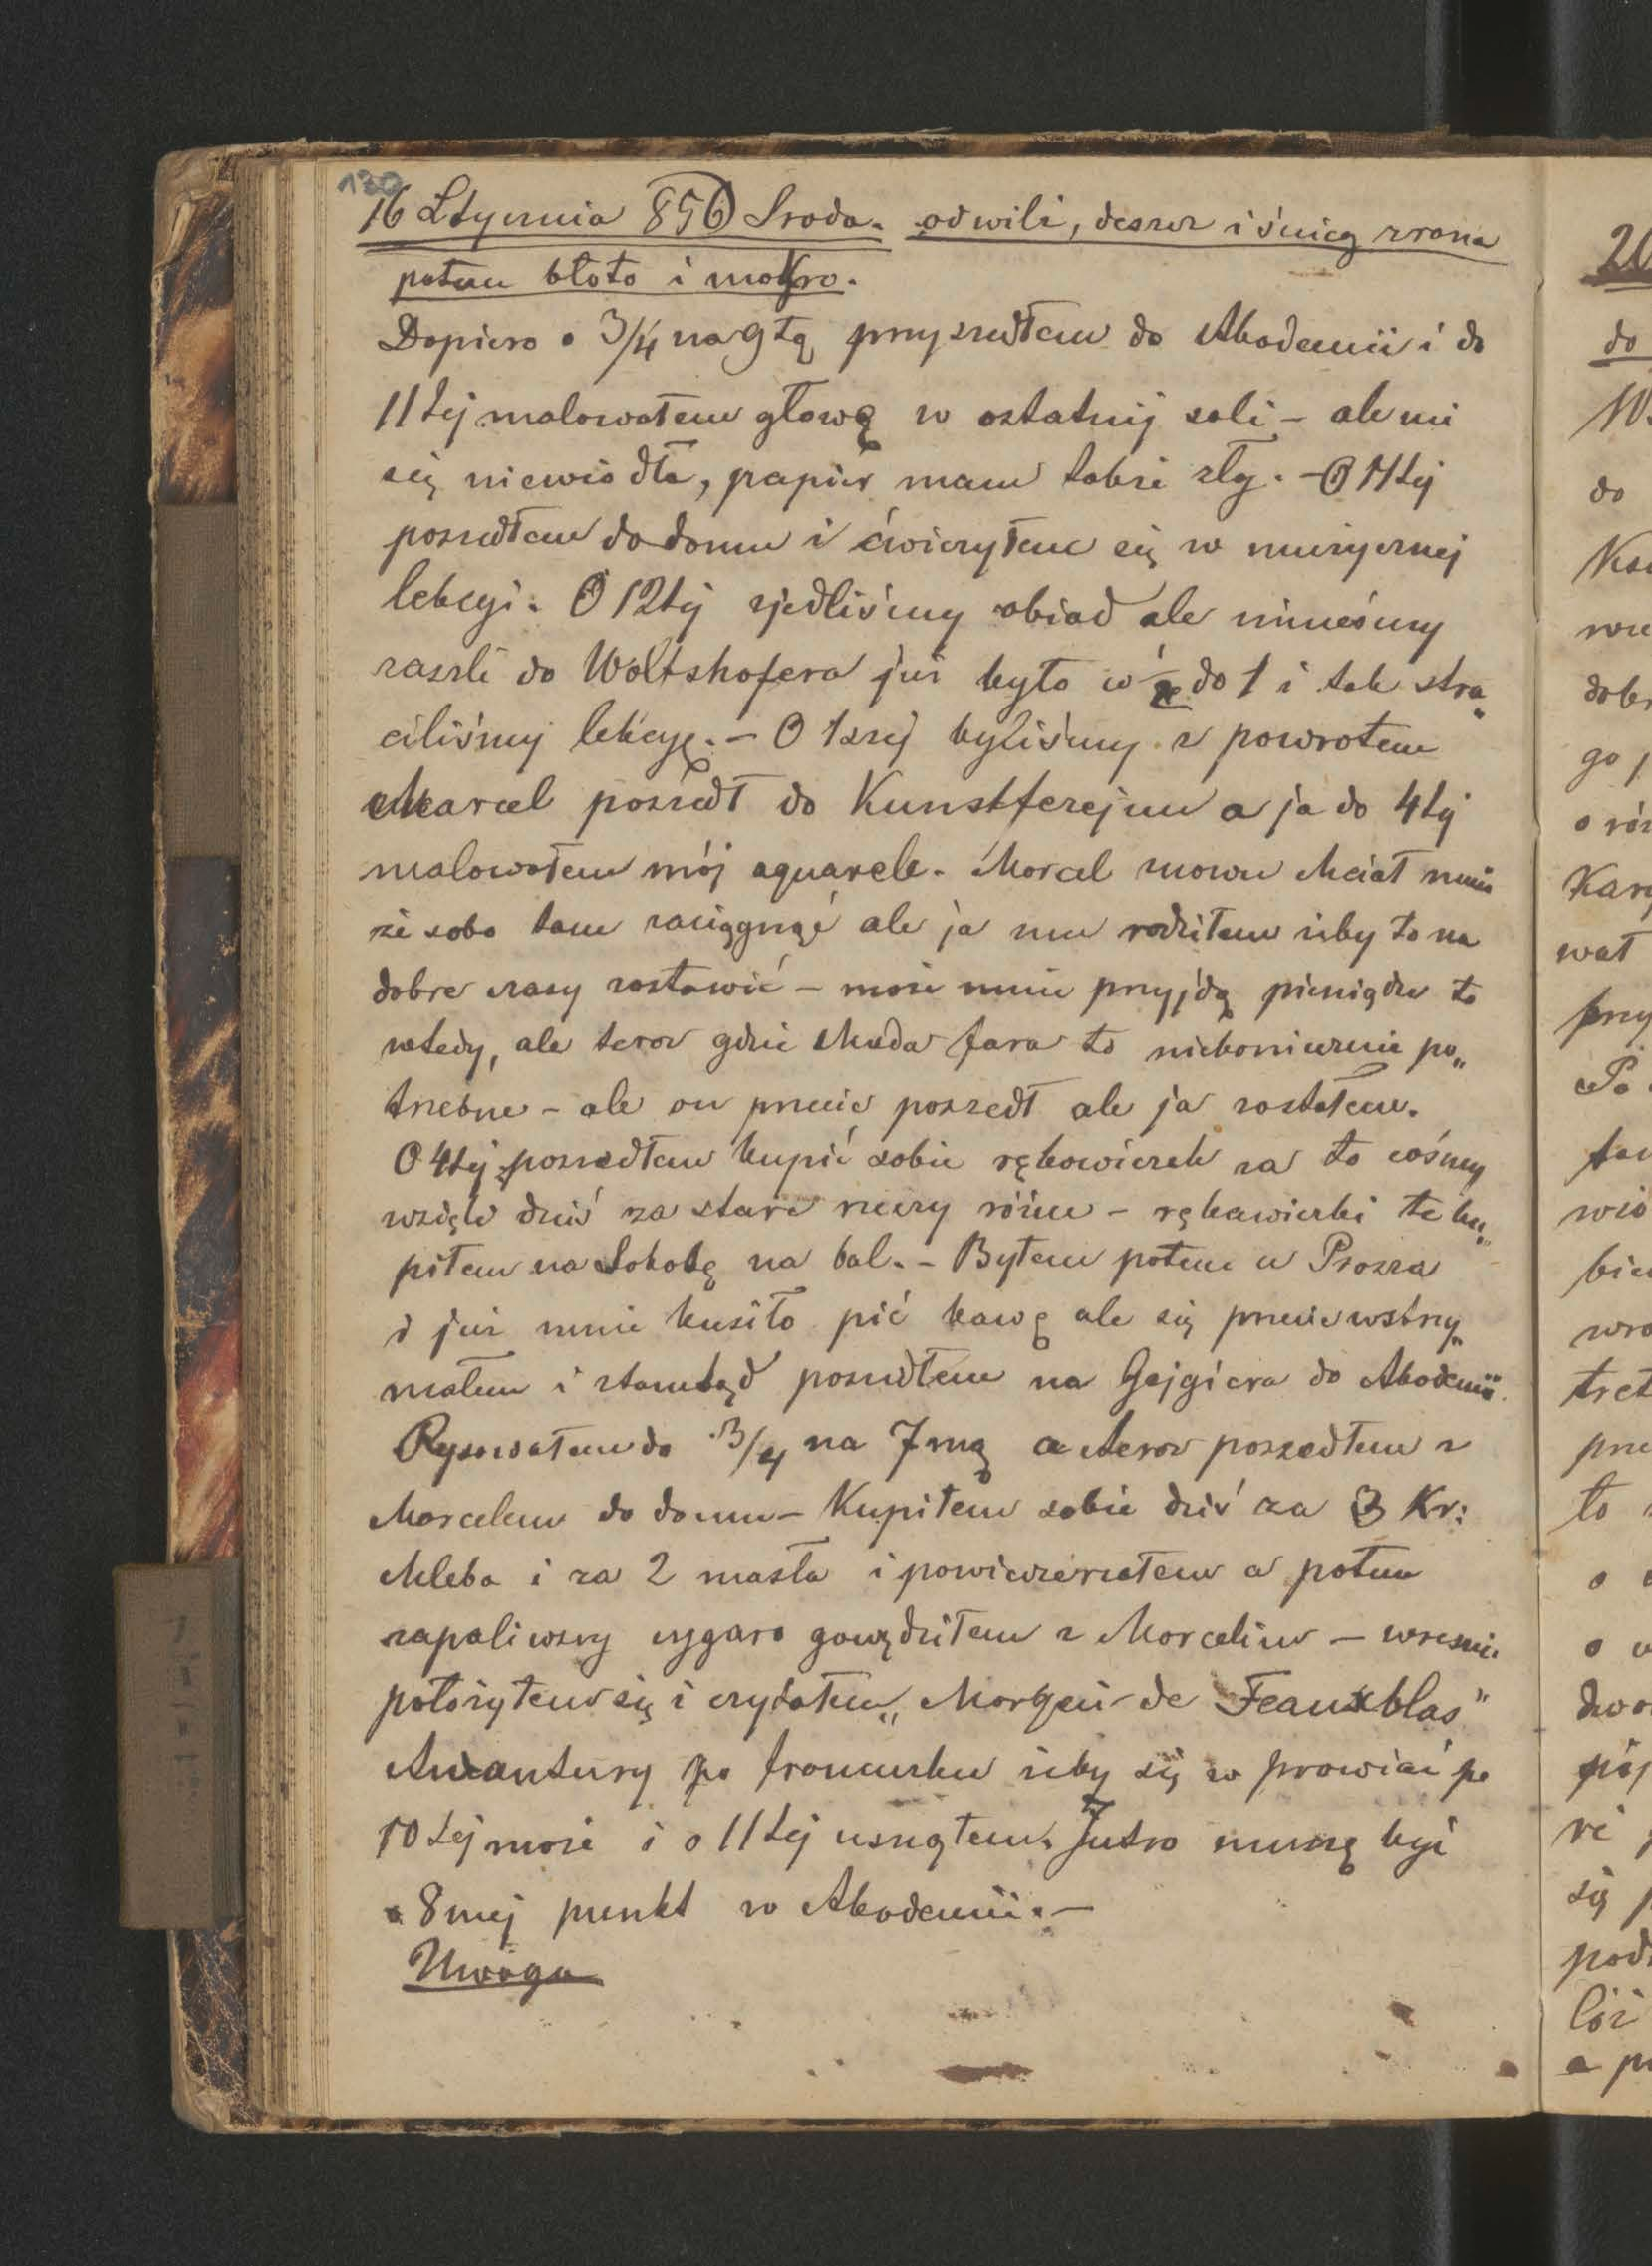 130
16 Stycznia 856 Środa. odwilż, deszcz i śnieg zrana
potem błoto i mokro.
Dopiero o 3/4 na 9tą przyszedłem do Akademii i do
11tej malowałem głowę w ostatniej sali – ale mi
się niewiodło, papier mam także zły. – O 11tej
poszedłem do domu i ćwiczyłem się w muzycznej
lekcyi. O 12tej zjedliśmy obiad ale nimeśmy
zaszli do Woltshofera już było w do 1 i tak stra„
ciliśmy lekcyę. – O 1szej byliśmy z powrotem
Marcel poszedł do Kunstferejnu a ja do 4tej
malowałem mój aquarele. Marcel znowu chciał mnie
ze sobo tam zaciągnąć ale ja mu radziłem żeby to na
dobre czasy zostawić – może mnie przyjdą pieniądze to
wtedy, ale teraz gdzie chuda fara to niekoniecznie po„
trzebne – ale on przecie poszedł ale ja zostałem.
O 4tej poszedłem kupić sobie rękawiczek za to cośmy
wzięli dziś za stare rzeczy różne – rękawiczki te ku„
piłem na Sobotę na bal. – Byłem potem u Prosza
i już mnie kusiło pić kawę ale się przecie wstrzy„
małem i stamtąd poszedłem na Gejgiera do Akademii.
Rysowałem do 3/4 na 7mą a teraz poszedłem z
Marcelem do domu – Kupiłem sobie dziś za 3 Kr:
chleba i za 2 masła i powieczerzałem a potem
zapaliwszy cygaro gawędziłem z Marcelim – wreszcie
położyłem się i czytałem „ de Feauxblas"
Awantury po francusku żeby się w prawiać po
10tej może i o 11tej usnąłem. Jutro muszę być
o 8mej punkt w Akademii. –
Uwaga